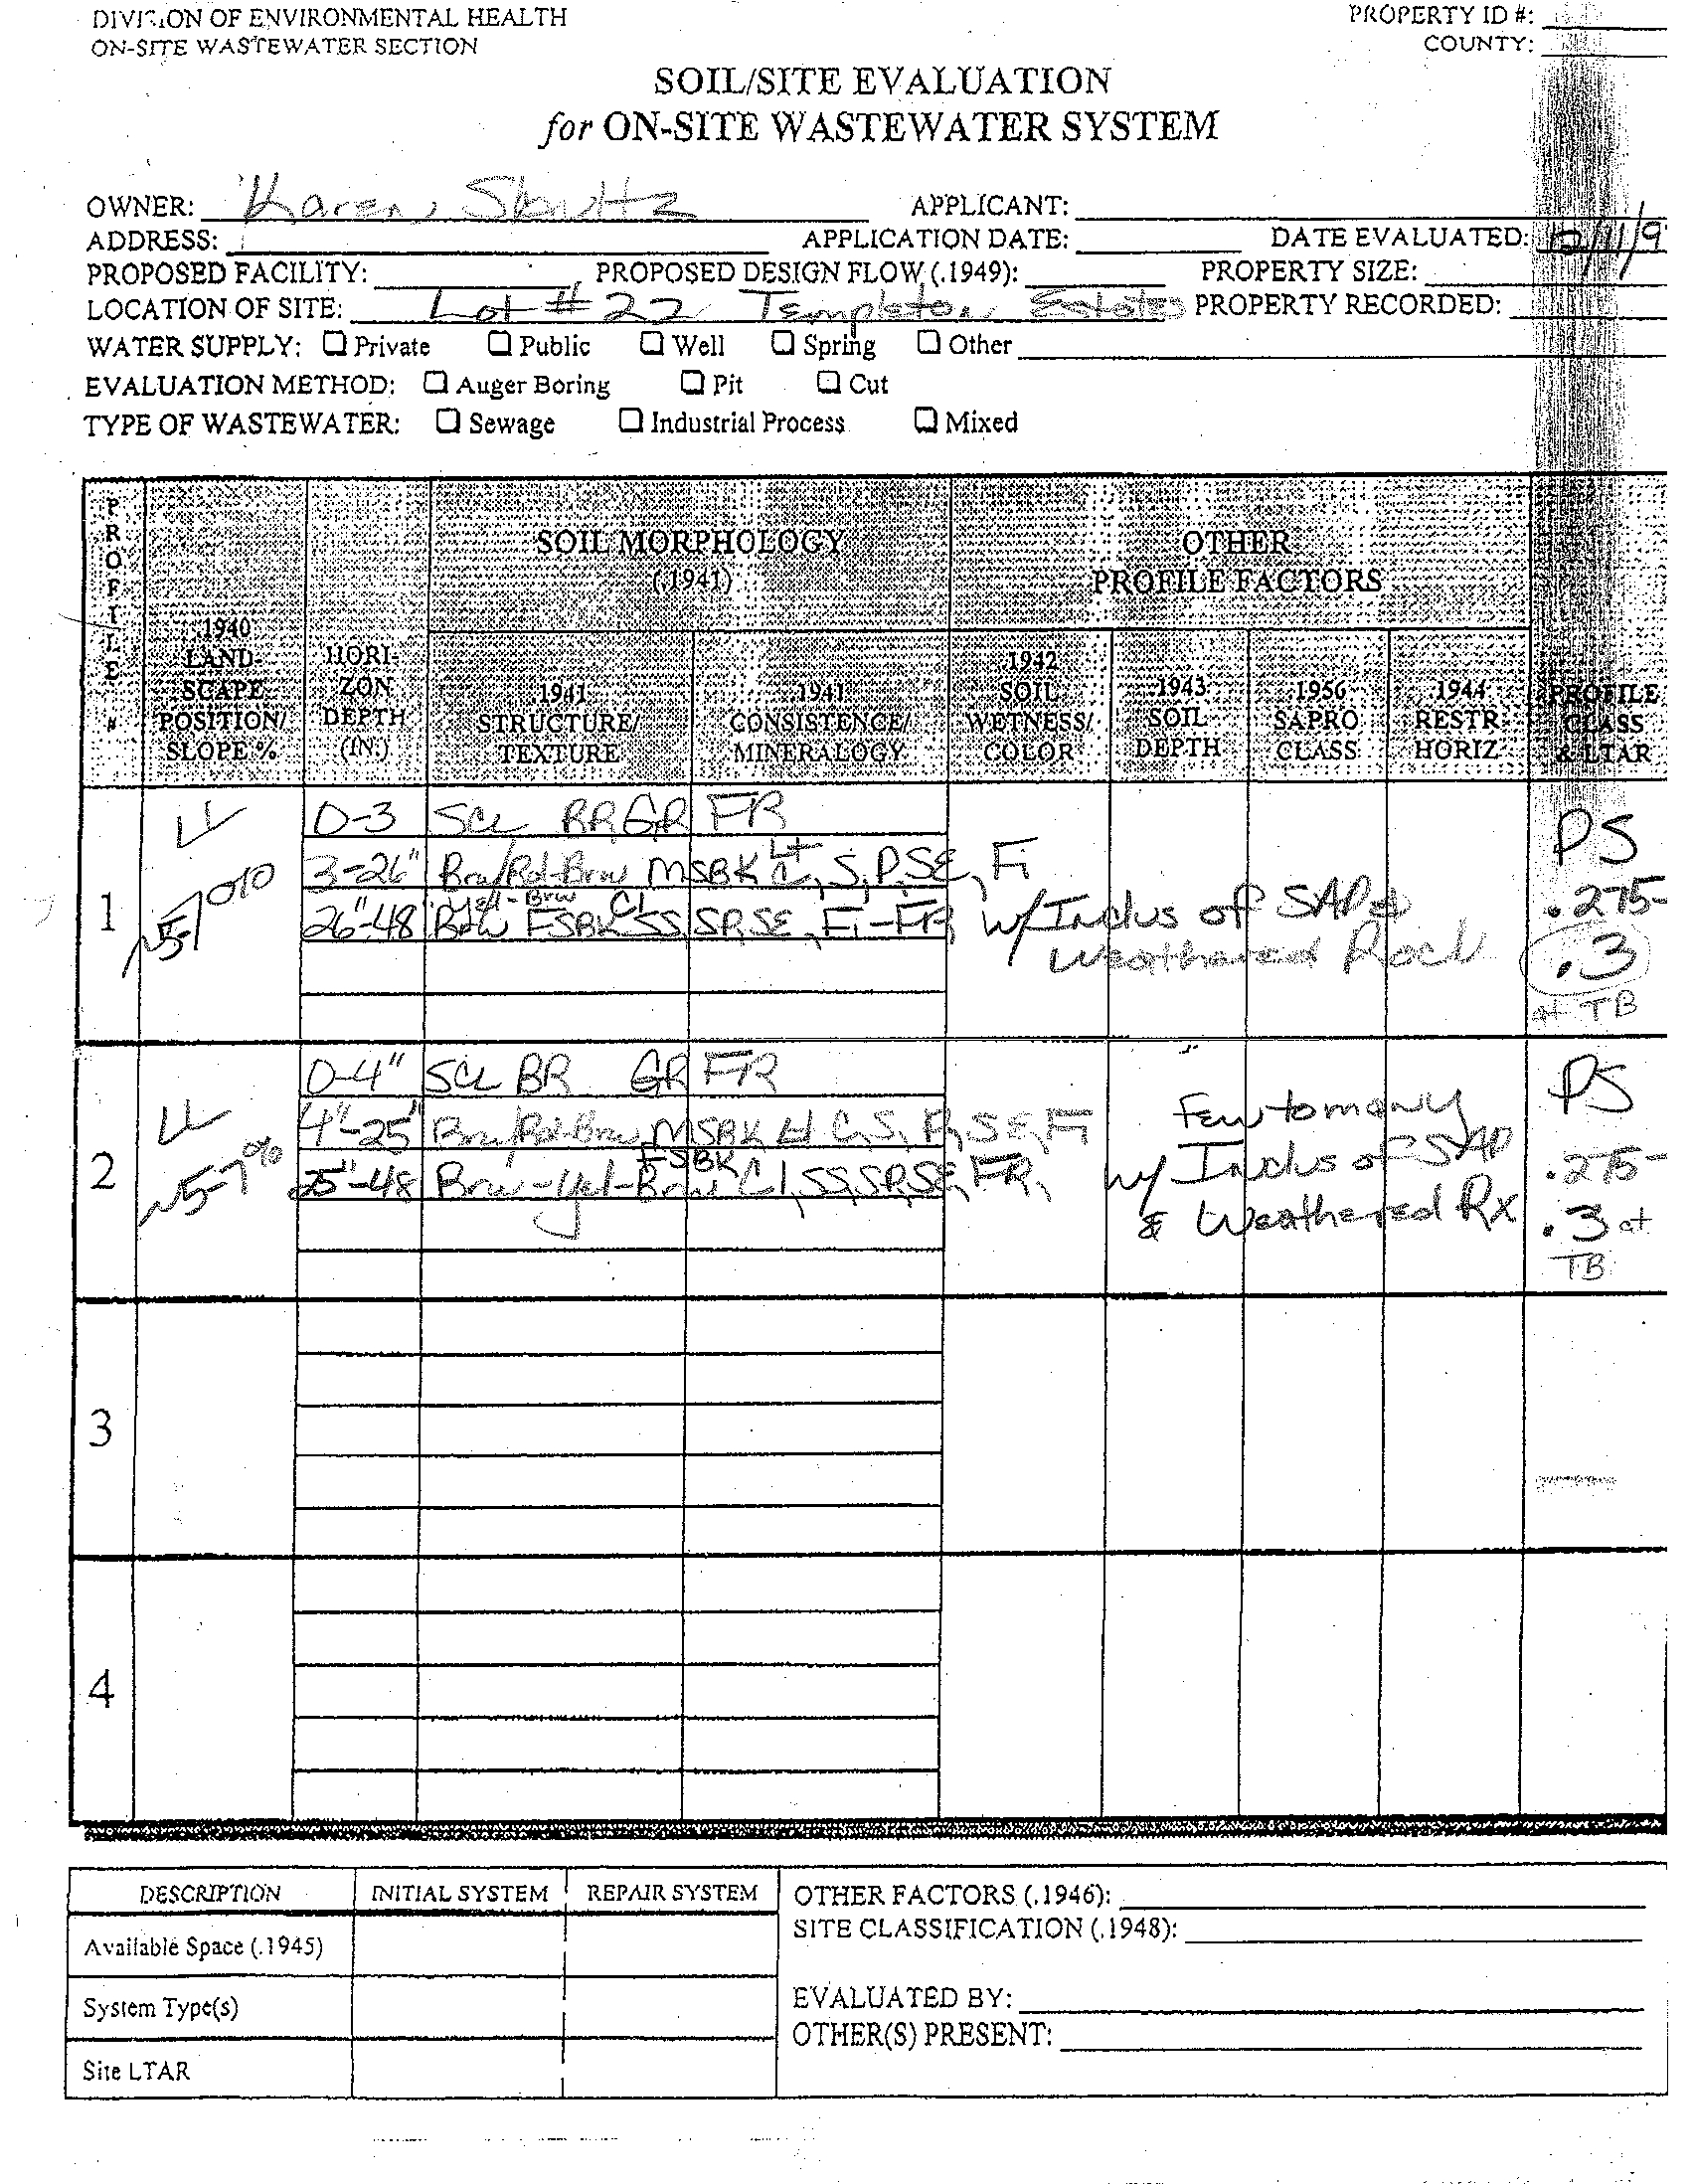 DIVISION OF ENVIRONMENTAL HEALTH
ON-SITE WASTEWATER SECTION
PROPERTY ID #:
COUNTY:
SOIL/SITE EVALUATION
for ON-SITE WASTEWATER SYSTEM
OWNER: Karen APPLICANT:
ADDRESS: APPLICATION DATE: DATE EVALUATED: 12/11/9
PROPOSED FACILITY: PROPOSED DESIGN FLOW (.1949): PROPERTY SIZE:
LOCATION OF SITE: Lot #22 Templeton Estates PROPERTY RECORDED:
WATER SUPPLY: Private Public Well Spring Other
EVALUATION METHOD: Auger Boring Pit Cut
TYPE OF WASTEWATER: Sewage Industrial Process Mixed
PROFILE #
.1940 LAND-SCAPE POSITION/ SLOPE %
HORI-ZON DEPTH (IN.)
SOIL MORPHOLOGY
(.1941)
.1941 STRUCTURE/ TEXTURE
.1941 CONSISTENCE/ MINERALOGY
OTHER
PROFILE FACTORS
.1942 SOIL WETNESS/ COLOR
.1943 SOIL DEPTH
.1956 SAPRO CLASS
.1944 RESTR HORIZ
PROFILE CLASS & LTAR
1
LL
~5-7%
0-3 SCL BR GR FR
3-26" Brw/Rd-Brw MSBK Lt C, S, P, SE, Fi
26"-48 Brw Yel-Brw FSBK Cl SS, SP, SE, Fi-FR, w/Inclus of SAP &
Weathered Rock
PS
.275-
.3
at TB
2
LL
~5-7%
0-4" SCL BR GR FR
4"-25" Brw/Rd-Brw MSBK Lt C, S, P, SE, Fi
25"-48 Brw-Yel-Brw FSBK Cl, SS, SP, SE, FR,
Few to many
w/ Inclus of SAP
& Weathered Rx
PS
.275-
.3 at
TB
3
4
DESCRIPTION INITIAL SYSTEM REPAIR SYSTEM
Available Space (.1945)
System Type(s)
Site LTAR
OTHER FACTORS (.1946):
SITE CLASSIFICATION (.1948):
EVALUATED BY:
OTHER(S) PRESENT: